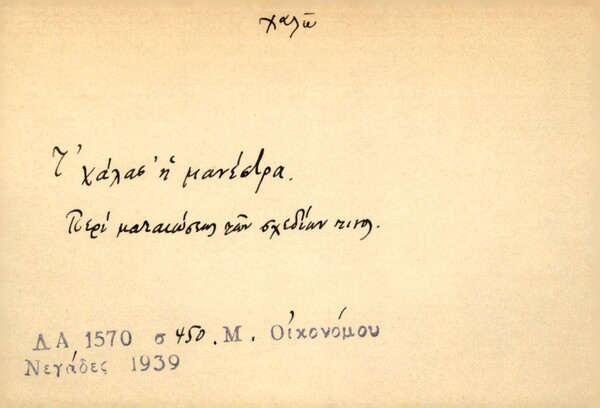 χαλῶ
Τ' χάλασ' ἡ μανέστρα.
Περί ματαιώσεως τῶν σχεδίων τινος.
ΔΑ 1570 σ 450. Μ. Οἰκονόμου
Νεγάδες 1939